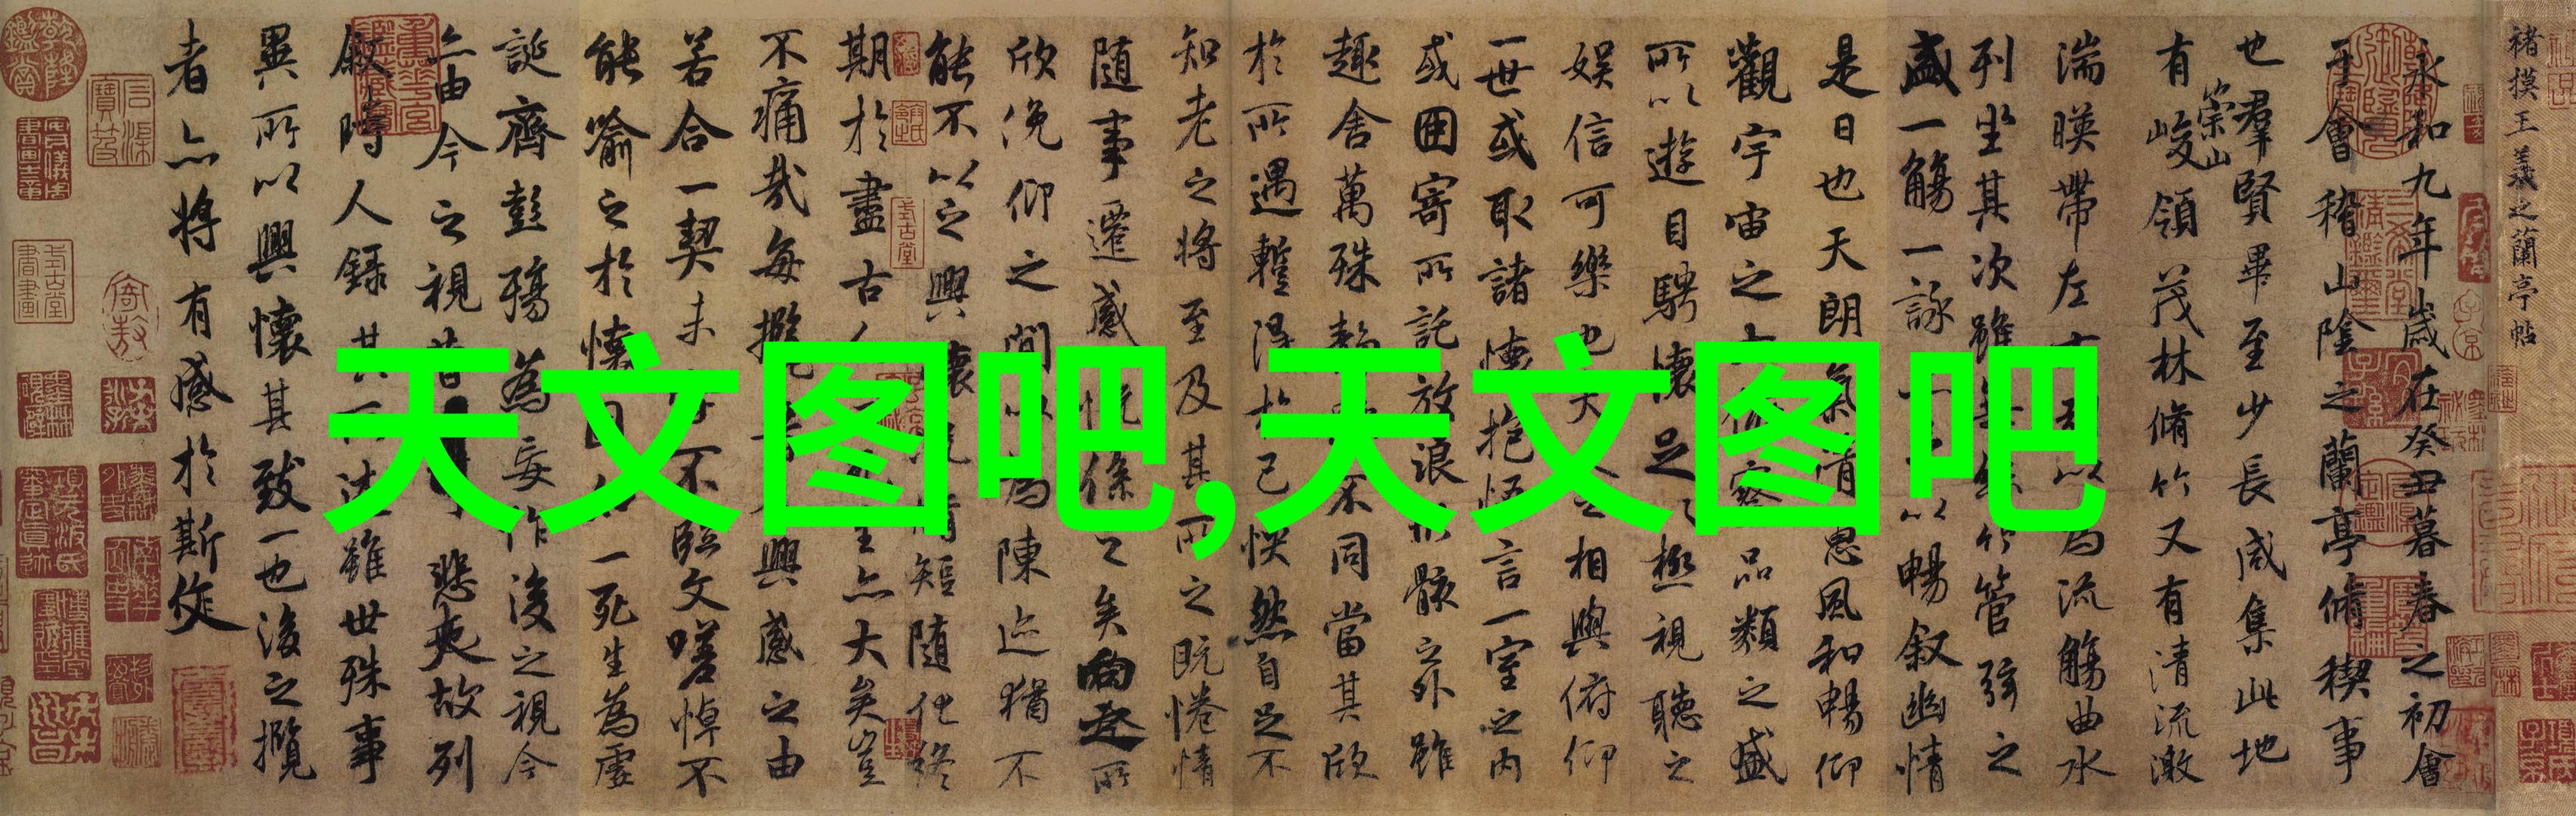 褚摸王羲之蘭亭帖
永和九年歲在癸丑暮春之初會
于會稽山陰之蘭亭脩稧事
也羣賢畢至少長咸集此地
有崇山峻領茂林脩竹又有清流激
湍暎帶左右以為流觴曲水
列坐其次雖無絲竹管弦之
盛一觴一詠以暢叙幽情
是日也天朗氣清惠風和暢仰
觀宇宙之大俯察品類之盛
所以遊目騁懷足以極視聽之
娛信可樂也夫之相與俯仰
一世或取諸懷抱悟言一室之內
或因寄所託放浪形骸之外雖
趣舍萬殊靜不同當其欣
於所遇蹔得於己怏然自足不
知老之將至及其所之既惓情
隨事遷感慨係之矣向之所
欣俛仰之間以為陳迹猶不
能不以之興懷況脩短隨化終
期於盡古人生亦大矣豈
不痛哉每攬昔興感之由
若合一契未不臨文嗟悼不
能喻之於懷固知一死生為虛
誕齊彭殤為妄作後之視今
亦由今之視昔悲夫故列
叙時人錄其所述雖世殊事
異所以興懷其致一也後之攬
者亦將有感於斯文
天文图吧,天文图吧